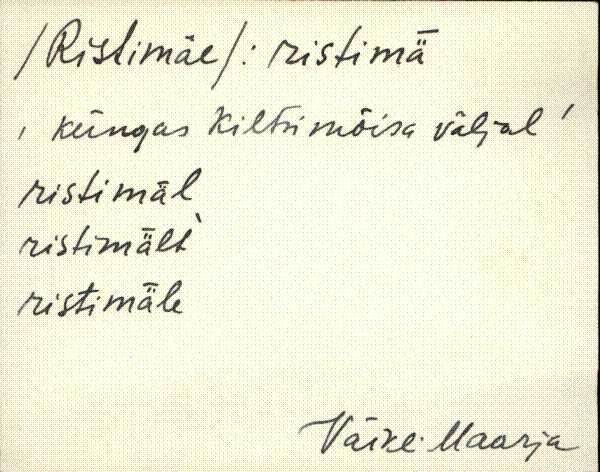 /Ristimäe/: ristimǟ
' küngas Kiltsimõisa väljal '
ristimäl
ristimält`
ristimǟle
Väike-Maarja